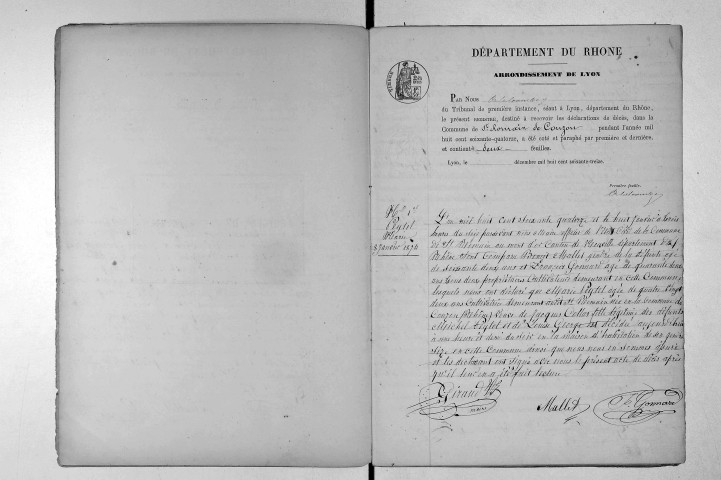 DÉPARTEMENT DU RHONE
ARRONDISSEMENT DE LYON
PAR NOUS
du Tribunal de première instance, séant à Lyon, département du Rhône,
le présent registre, destiné à recevoir les déclarations de décès, dans la
Commune de St Romain de Couzon pendant l'année mil
huit cent soixante-quatorze, a été coté et paraphé par première et dernière,
et contient deux feuilles.
Lyon, le décembre mil huit cent soixante-treize.
Première feuille.
No 1er
Peytel
Marie
8 Janvier 1874
L'an mil huit cent soixante quatorze et le huit janvier à
heure du soir pardevant nous officier de l'état Civil de la Commune
de St Romain au mont d'or Canton de Neuville département du
Rhône sont comparu Benoit Mallet gendre de la défunte agé
de soixante deux ans et François Gonnard agé de quarante deux
ans tous deux propriétaires Cultivateurs demeurant en cette Commune
lesquels nous ont déclaré que Marie Peytel agée de quatre vingt
deux ans Cultivatrice demeurant audit St Romain née en la Commune de
Couzon (Rhône) veuve de Jacques fille légitime des défunts
Michel Peytel et de Louise George est décédée aujourd'hui
à une heure et demi du soir en la maison d'habitation de son gendre
sise en cette Commune ainsi que nous nous en sommes assuré
et les déclarant ont signé avec nous le présent acte de décès après
qu'il leur en a été fait lecture
Giraud
Mallet
Gonnard